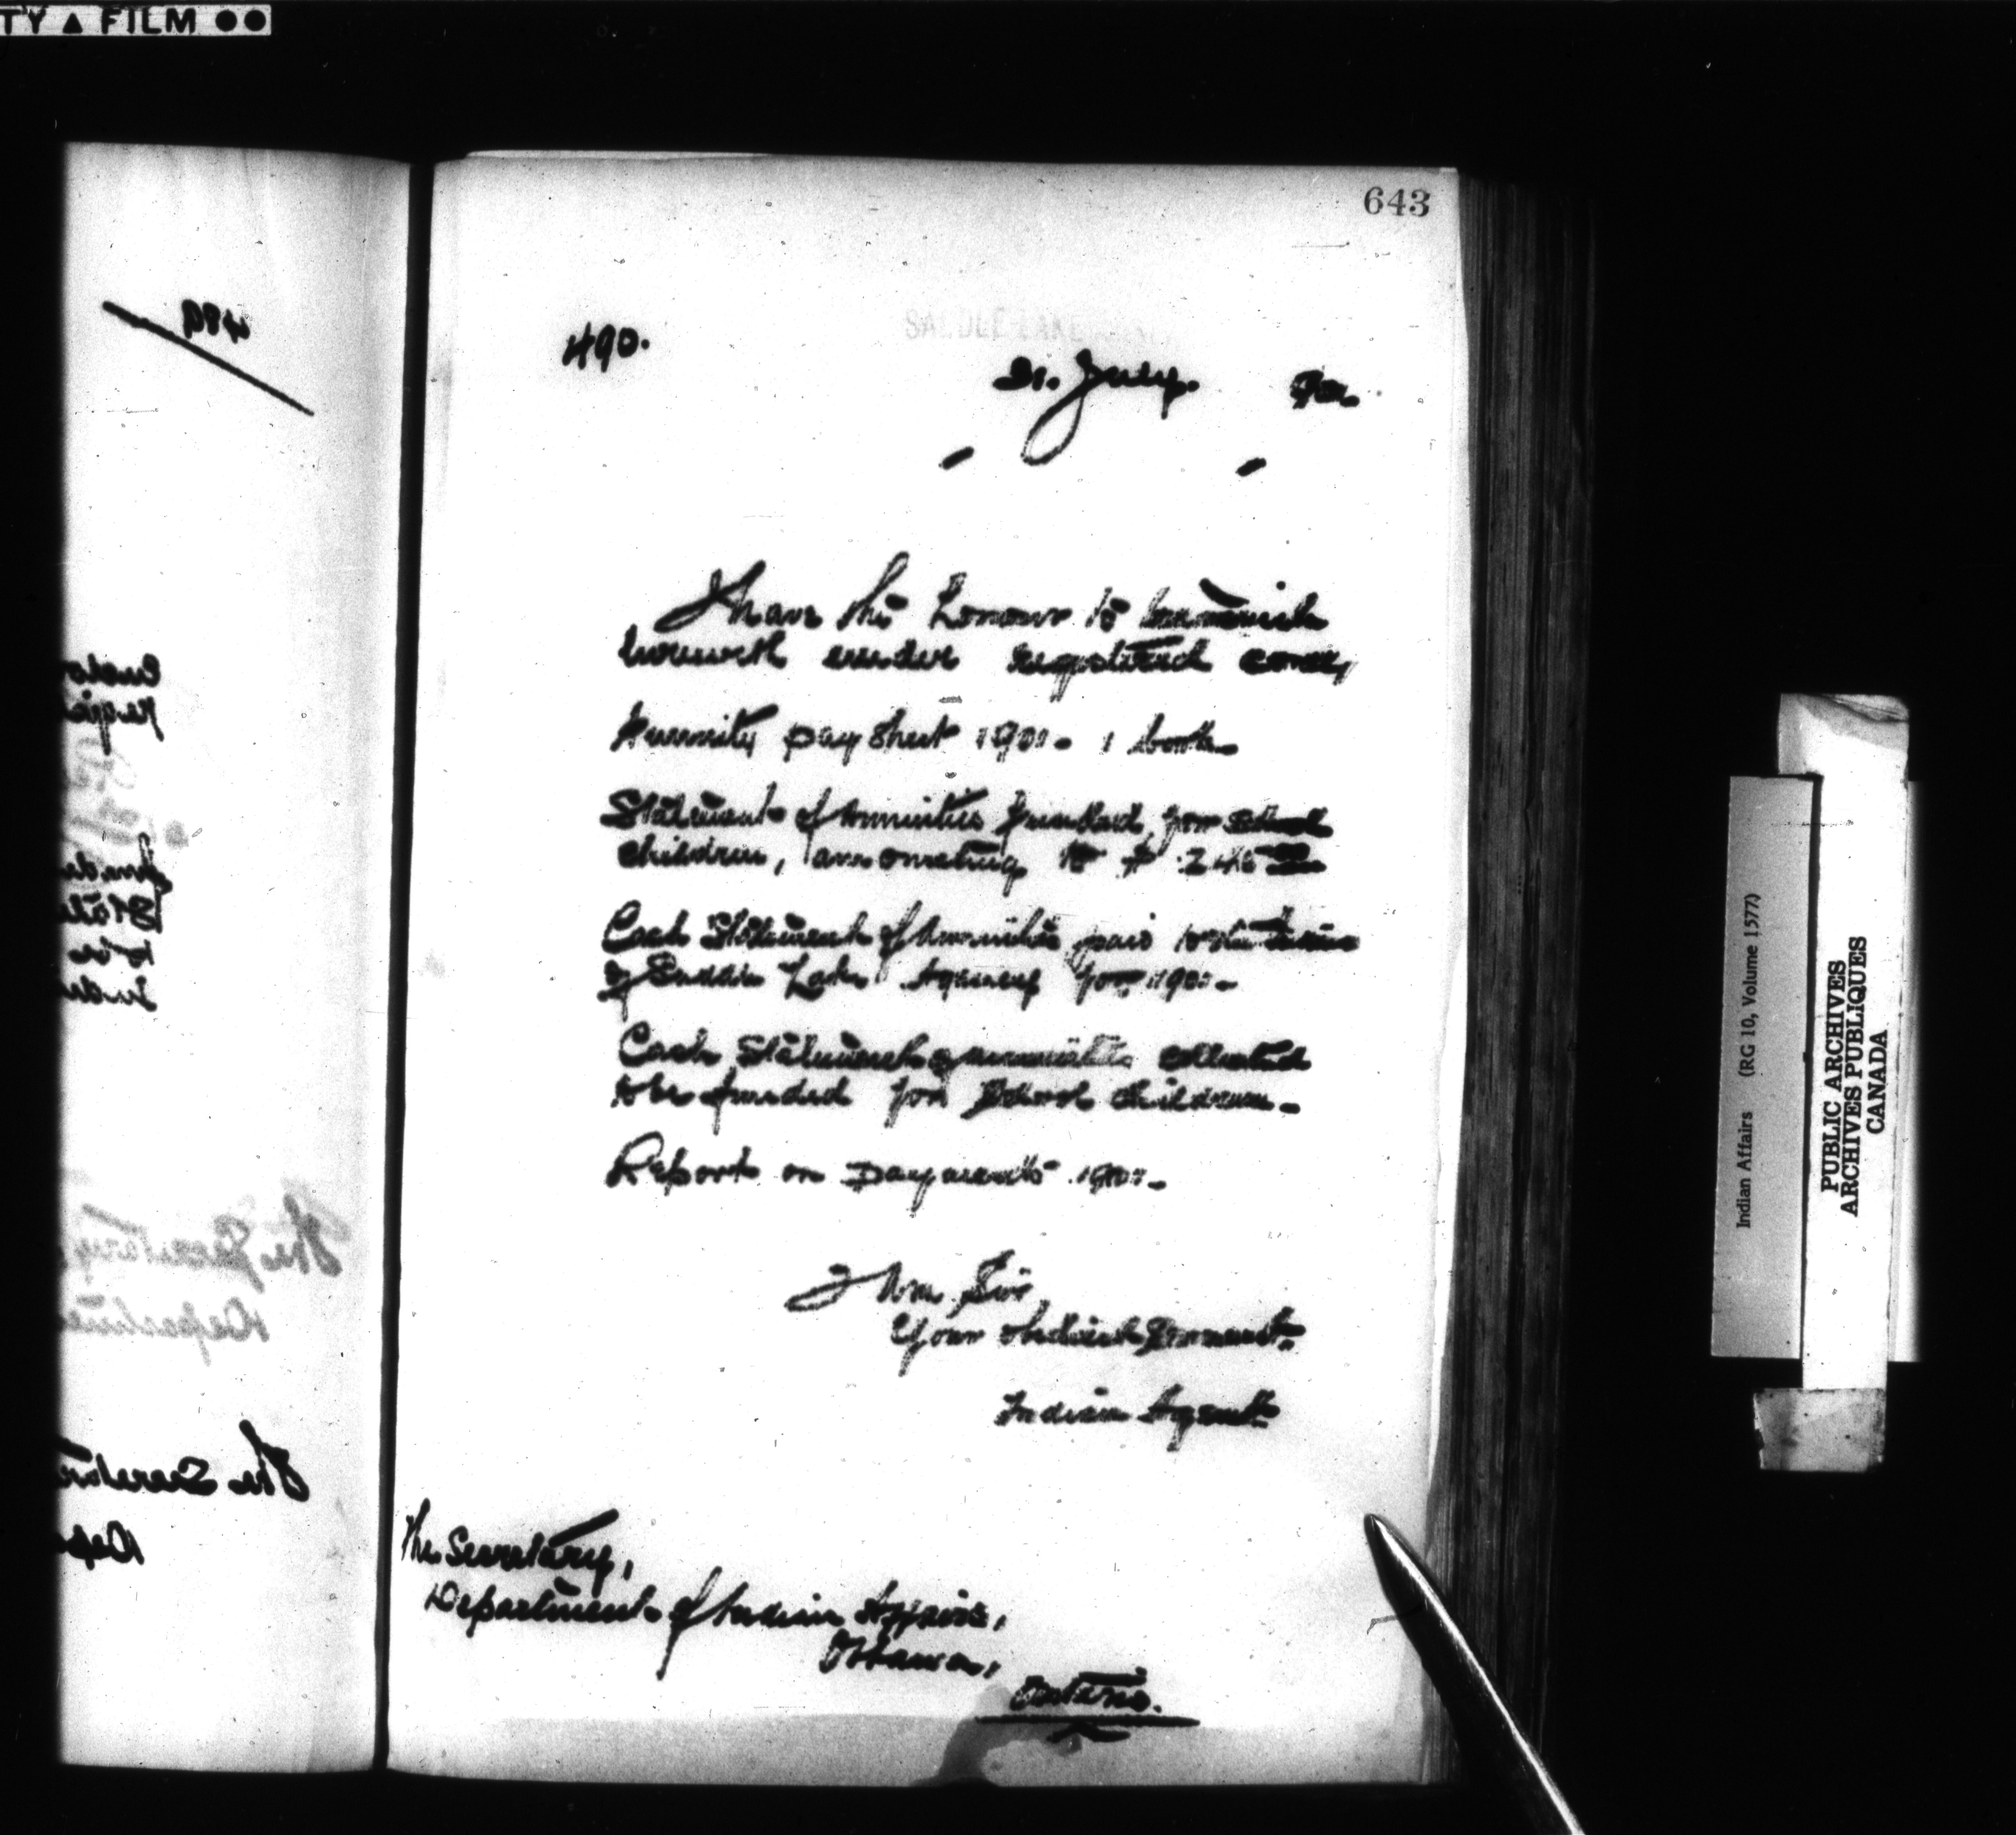 TY ▲ FILM ●●
643
489
490.
SADDLE LAKE
21. July. 901.
I have the honour to transmit
herewith under registered cover,
Annuity pay sheet 1901. 1 book.
Statement of Annuities funded for school
children, amounting to $
Cash Statement of Annuities paid to the
of Saddle Lake Agency for 1901.
Cash Statement of annuities collected
to be funded for School children.
Report on Payments 1901.
I am Sir,
Your obedient Servant.
Indian Agent
The Secretary,
Department of Indian Affairs,
Ottawa,
Ontario.
The Secretary
The Secretar
Depa
Indian Affairs (RG 10, Volume 1577)
PUBLIC ARCHIVES
ARCHIVES PUBLIQUES
CANADA